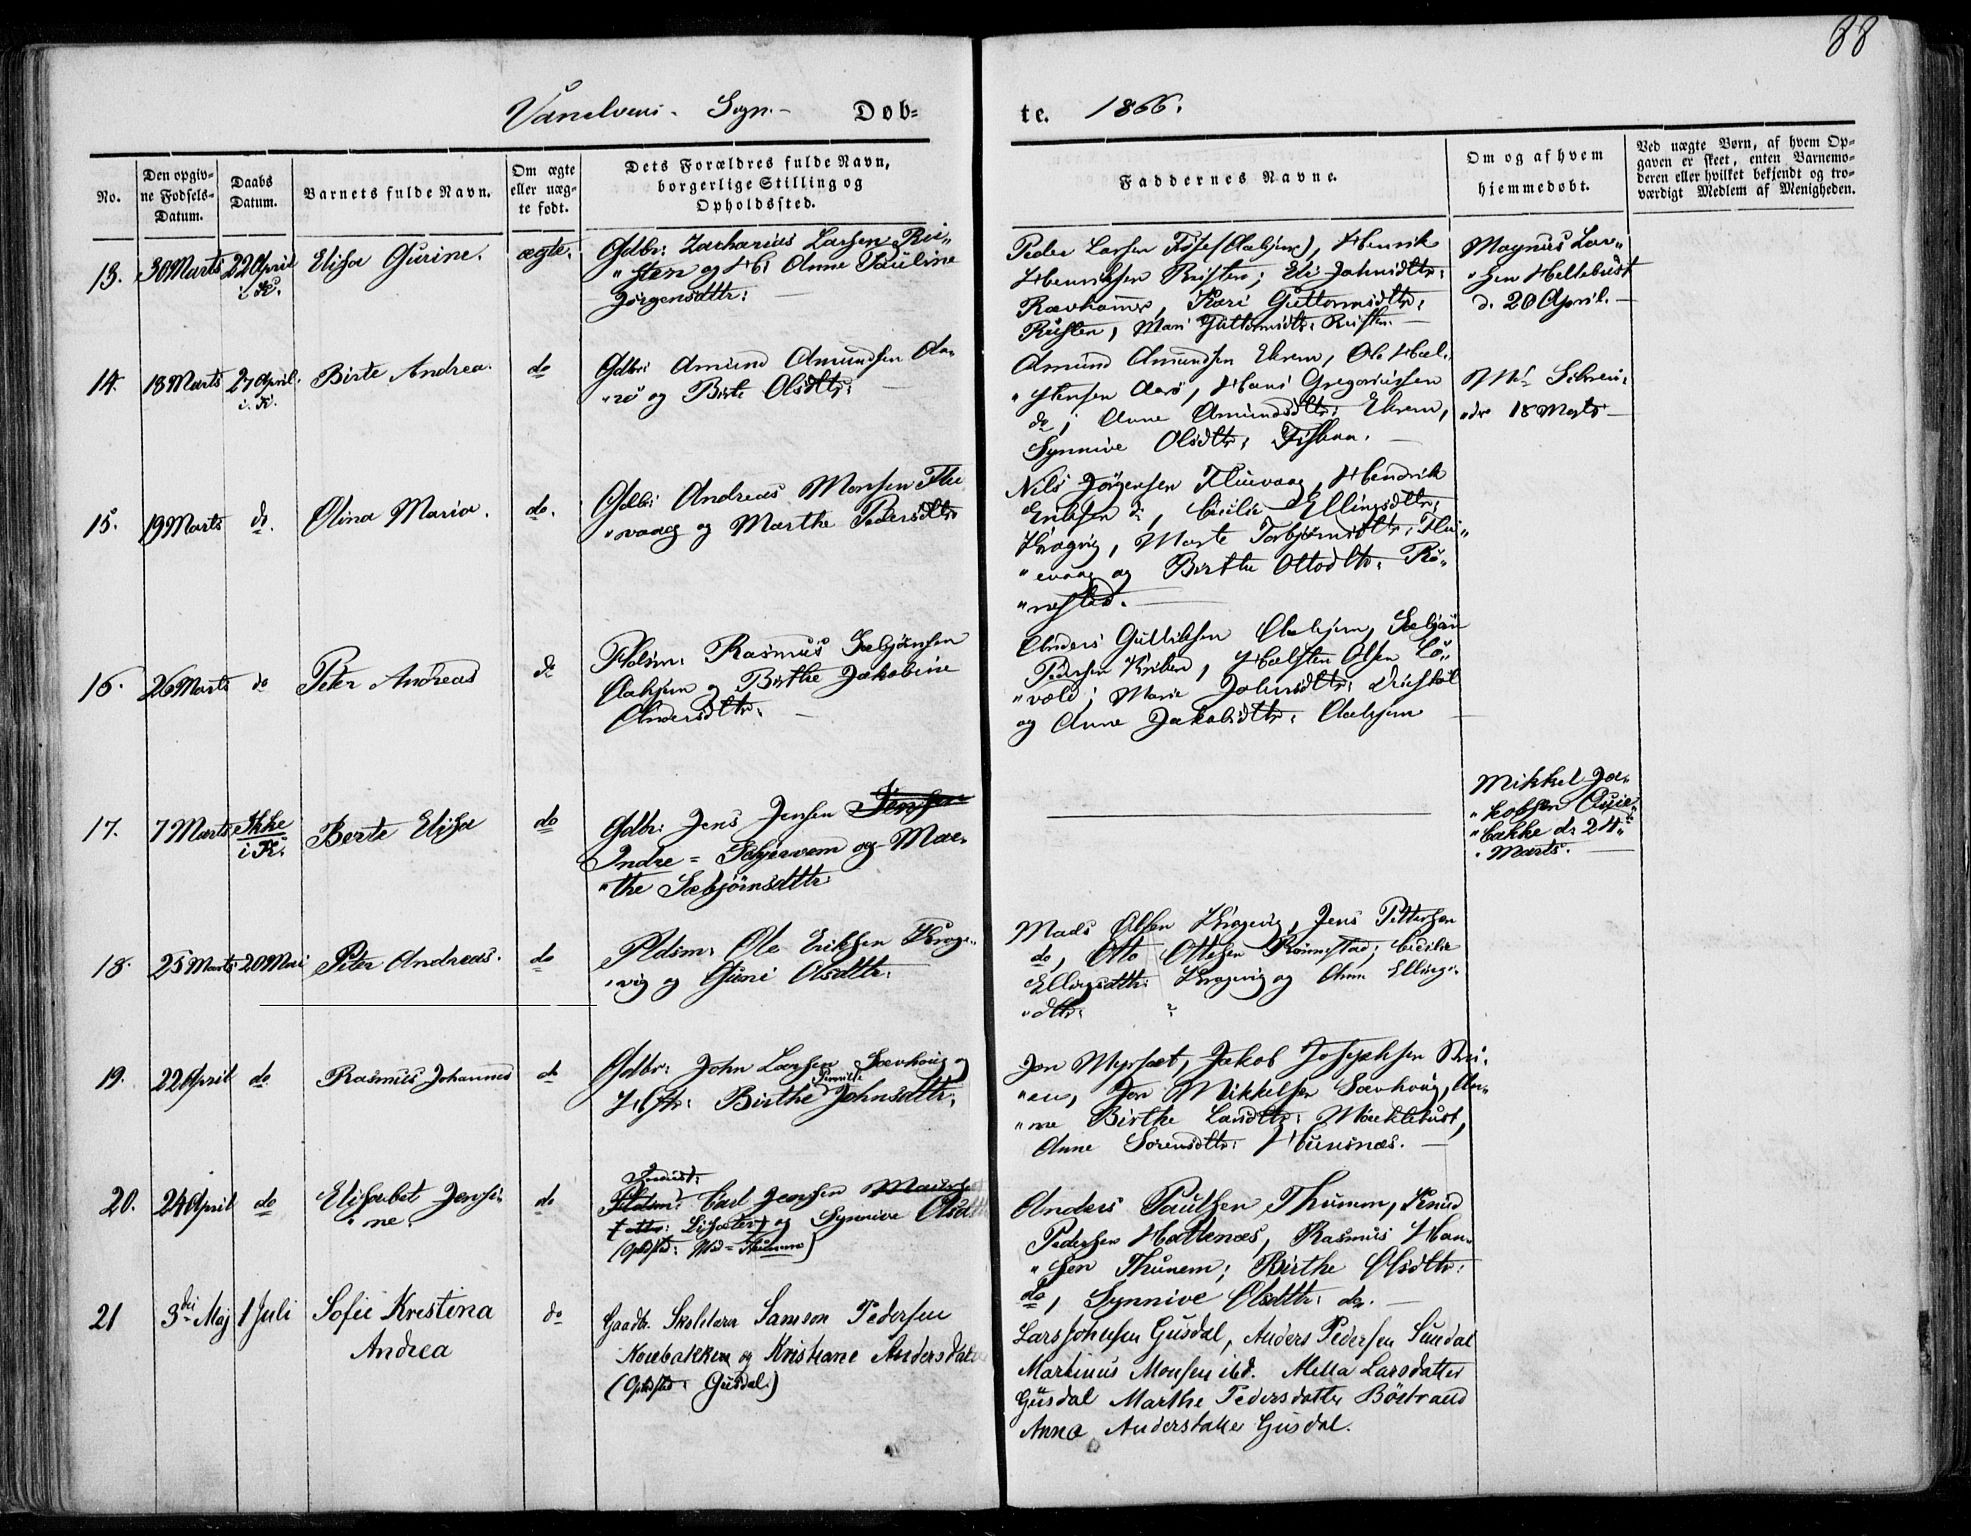 88
Vanelvens Sogn. Dob= te. 1866.
No.
Den opgiv-
ne Fødsels-
Datum.
Daabs
Datum.
Barnets fulde Navn.
Om ægte
eller uæg-
te født.
Dets Forældres fulde Navn,
borgerlige Stilling og
Opholdssted.
Faddernes Navne.
Om og af hvem
hjemmedøbt.
Ved uægte Børn, af hvem Op-
gaven er skeet, enten Barnemo-
deren eller hvilket bekjendt og tro-
værdigt Medlem af Menigheden.
13. 30 Marts 22 April
i K.
Elisa Gurine. ægte.
Gdbr: Zacharias Larsen Ru„
„sten og H. Anne Pauline
Jørgensdttr:
Peder Larsen (Aahjem), Henrik
Henriksen Rusten; Eli Johnsdttr:
Ravhammer, Kari Guttormsdttr:
Rusten, Mari Guttormsdttr: Rusten.
Magnus Lar„
„sen Hellebust
d. 20 April.
14. 18 Marts 27 April.
i K.
Birte Andrea. do
Gdbr: Amund Amundsen Aa„
„rø og Birte Olsdttr:
Amund Amundsen Ekrem, Ole Hal„
„stensen Aarø, Hans Gregoriussen
do; Anne Amundsdttr: Ekrem,
Synnive Olsdttr: Fiskaa.
18 Marts
15. 19 Marts do. Olina Maria. do.
Gdbr: Andreas Monsen Flu
„vaag og Marthe Pedersdttr
Nils Jørgensen Fluevaag, Hendrik
Eriksen do, Cicilie Ellingsdttr:
Kragvig, Marte Torbjørnsdttr: Flu„
„evaag og Birthe Ottosdttr: Rø„
„nestad.
16. 26 Marts do Peter Andreas do
Pldsm: Rasmus Sæbjørnsen
Aahjem og Birthe Jakobine
Andersdttr:
Anders Gulliksen Aahjem, Sæbjørn
Pedersen, Halsten Olsen Lø„
„vold; Marie Johnsdttr:
og Anne Jakobsdttr: Aahjem
17. 7 Marts Ikke
i K.
Berte Elisa do
Gdbr: Jens Jensen Jensen
Indre = Skjervem og Mar„
„the Sæbjørnsdttr:
Mikkel Ja„
„kobsen
„bakke d: 24
Marts.
18. 25 Marts 20 Mai Peter Andreas. do
Pldsm: Ole Eriksen Krage„
„vig og Guni Olsdttr:
Mads Olsen Kragevig, Jens Pettersen
do, Otto Ottesen Rønnestad; Cicilie
Ellingsdttr: Kragevig og Anne Ellings„
„dttr: „
19. 22 April do Rasmus Johannes do
Gdbr: John Larsen Sævhoug og
Hstr: Birthe Pernille Johnsdttr:
Jon Myrsæt, Jakob Josephsen
„en, Jon Mikkelsen Sævhoug, An„
„ne Birthe Larsdttr: Mæklebust,
Anne Sørensdttr: Hunsnæs.
20. 24 April do Elisabet Jensi„
„ne.
do
Inderst:
Pldsm: Carl Jensen Madsse
og Synnive Olsdttr
(Opholdsted: Med = Thunem)
Anders Paulsen Thunem, Knud
Pedersen Hattenæs, Rasmus Han„
„sen Thunem; Birthe Olsdttr:
do, Synnive Olsdttr: do.
21 3die Maj 1 Juli Sofie Kristena
Andrea
do
Gaadbr. Skolelærer Samson Pedersen
Korsbakken og Kristiane Andersdatter
(Opholdsted: Gusdal.)
Lars Johnsen Gusdal, Anders Pedersen Sundal
Martinus Monsen ibd. Mella Larsdatter
Gusdal Marthe Pedersdatter Bøstrand
Anna Andersdatter Gusdal.